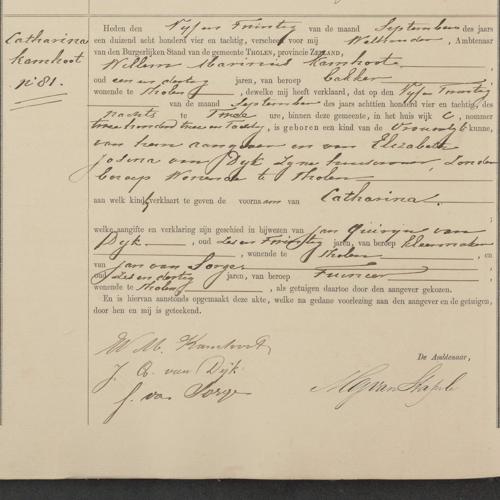 Catharina
Kamhoot
n° 81.
Heden den Vijf en Twintig van de maand September des jaars
een duizend acht honderd vier en tachtig, verscheen voor mij Wethouder, Ambtenaar
van den Burgerlijken Stand van de gemeente THOLEN, provincie ZEELAND,
Willem Marinus Kamhoot
oud een en dertig jaren, van beroep bakker
wonende te Tholen, dewelke mij heeft verklaard, dat op den Vijf en Twintig
van de maand September des jaars achttien honderd vier en tachtig, des
nachts te Twee ure, binnen deze gemeente, in het huis wijk C, nommer
twee honderd twee en tachtig, is geboren een kind van de Vrouwelijke kunne,
van hem aangever en van Elizabeth
Josina van Dijk zijne huisvrouw, zonder
beroep wonende te Tholen
aan welk kind hij verklaart te geven de voornaam van Catharina.
welke aangifte en verklaring zijn geschied in bijwezen van Jan Quirijn van
Dijk, oud zes en Twintig jaren, van beroep kleermaker
, wonende te Tholen, en
van Jan van Sorge
oud zes en dertig jaren, van beroep
wonende te Tholen, als getuigen daartoe door den aangever gekozen.
En is hiervan aanstonds opgemaakt deze akte, welke na gedane voorlezing aan den aangever en de getuigen,
door hen en mij is geteekend.
W. M. Kamhoot
J. Q. van Dijk
J. van Sorge
De Ambtenaar,